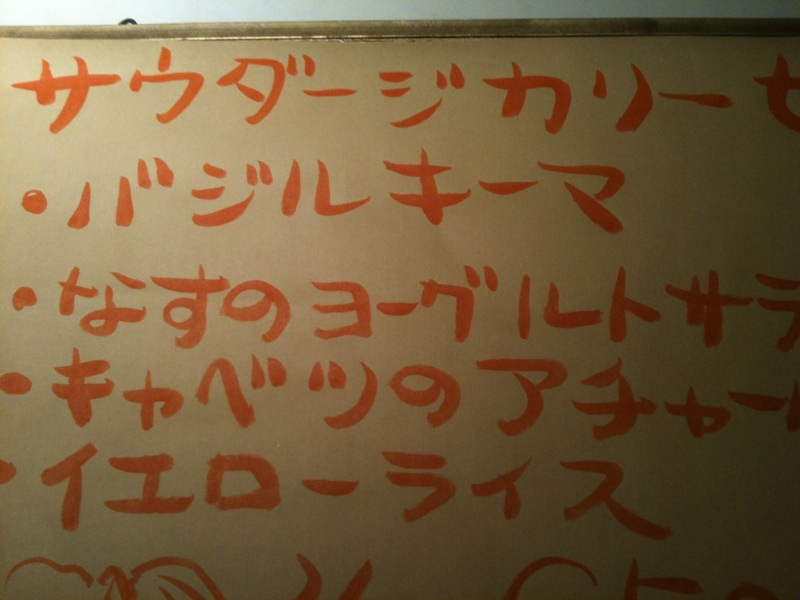 サウダージカリーセ
・バジルキーマ
・なすのヨーグルトサラ
・キャベツのアチャール
・イエローライス